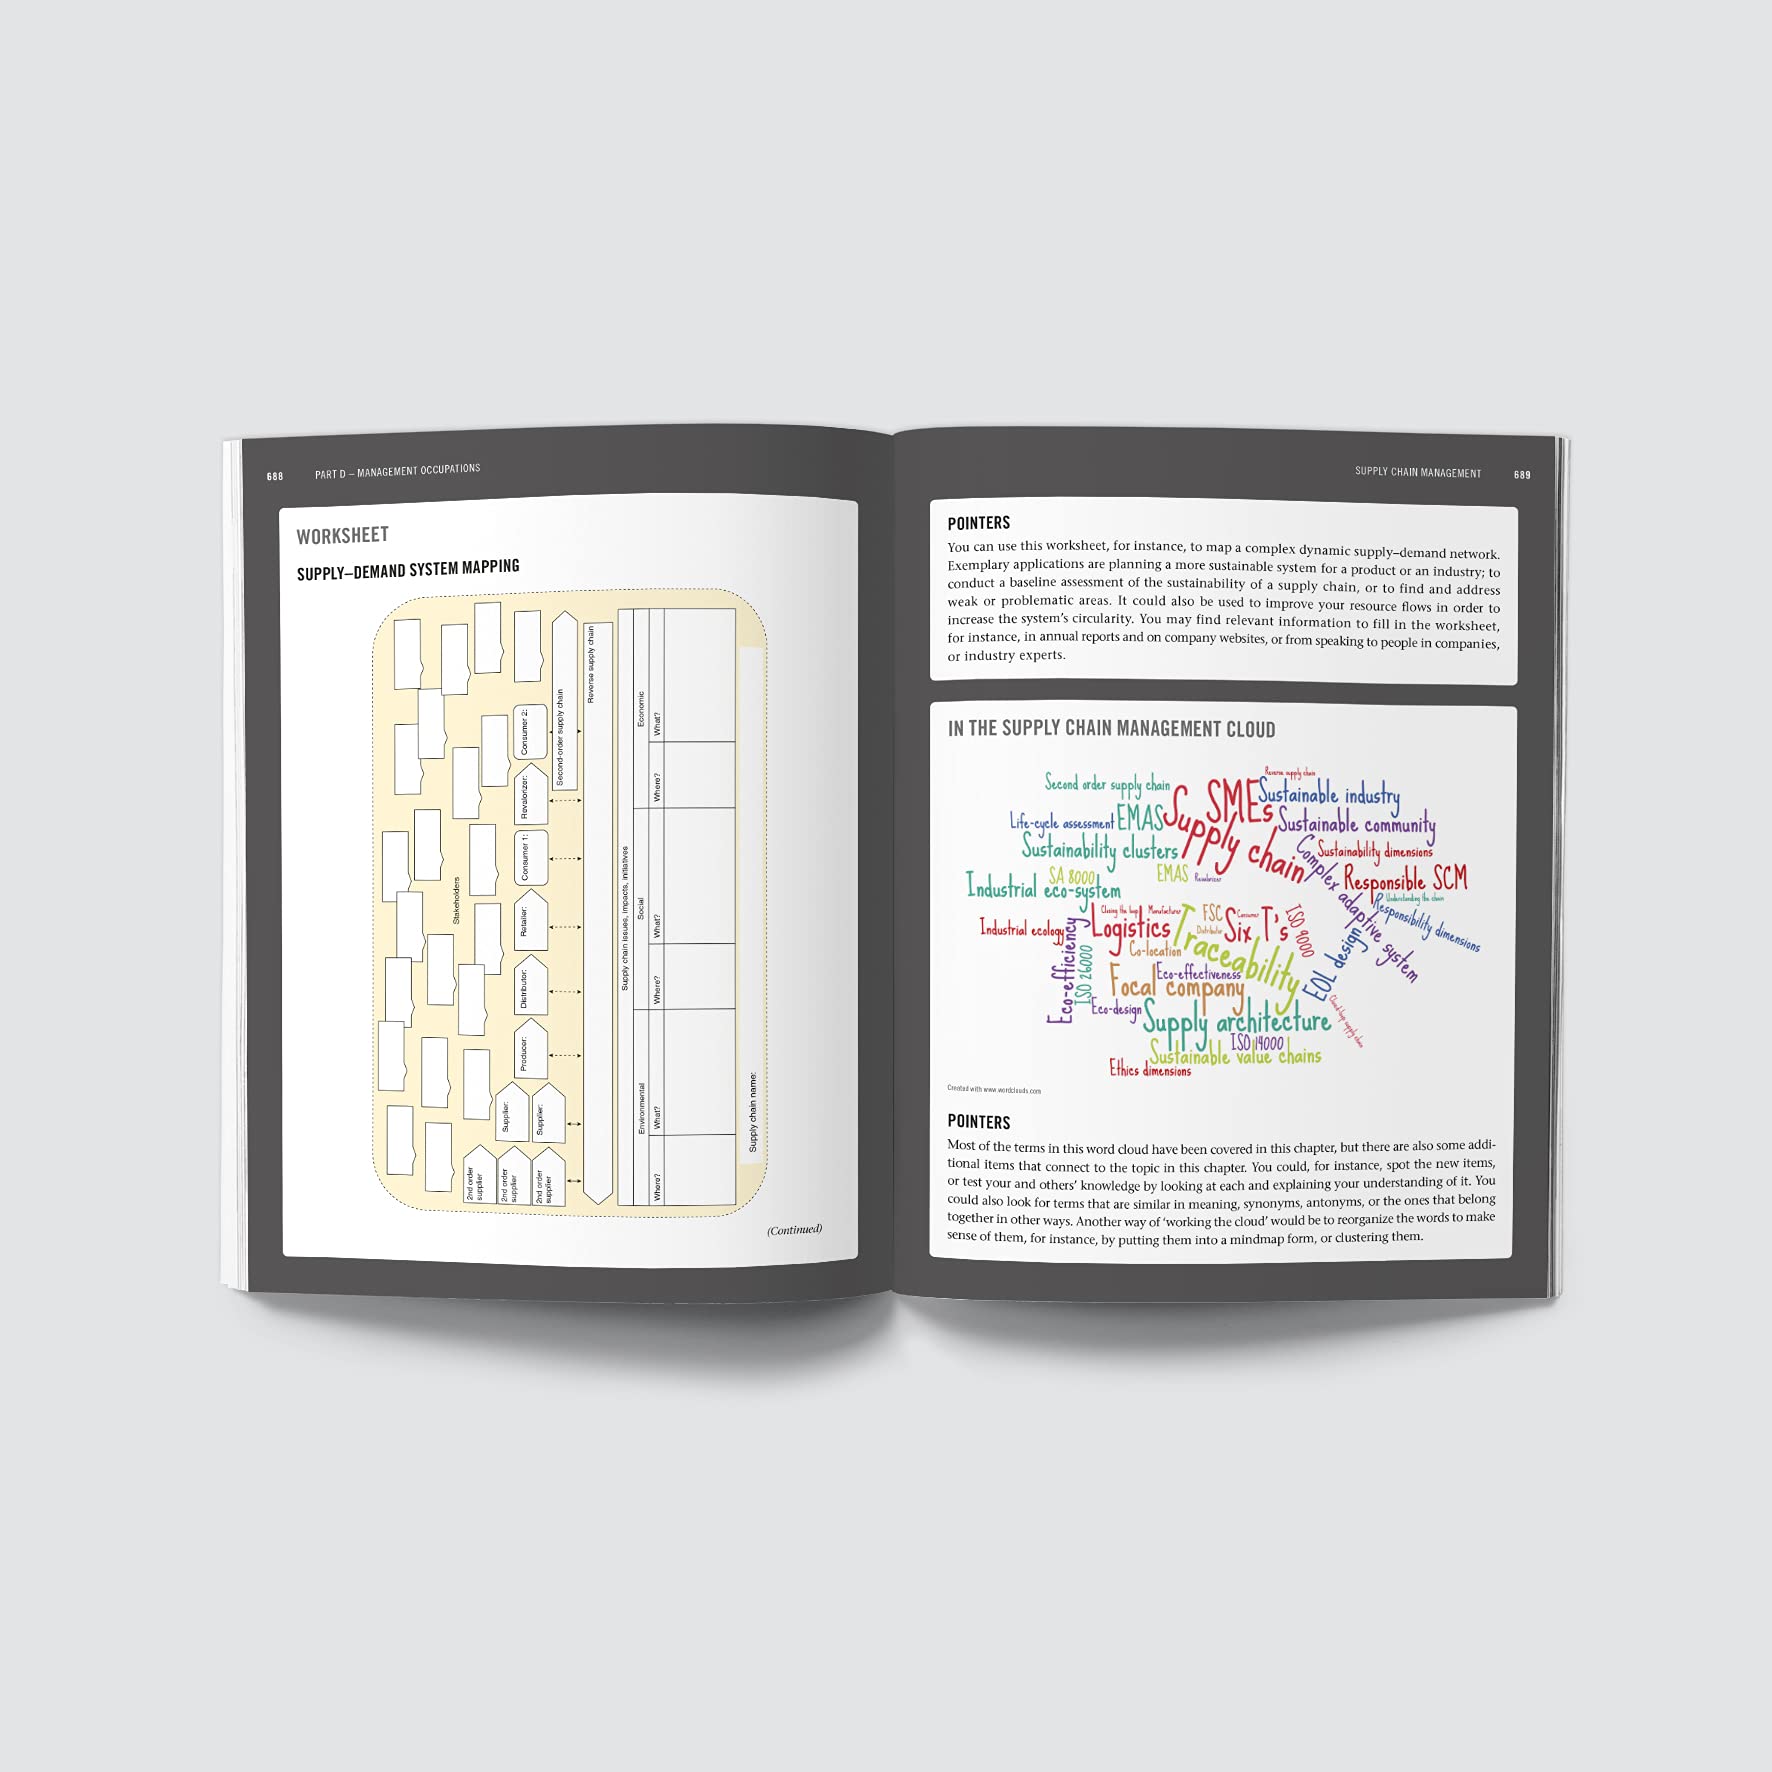 688 PART D – MANAGEMENT OCCUPATIONS
WORKSHEET
SUPPLY–DEMAND SYSTEM MAPPING
Stakeholders
2nd order
supplier
2nd order
supplier
2nd order
supplier
Supplier:
Supplier:
Producer:
Distributor:
Retailer:
Consumer 1:
Revalorizer:
Consumer 2:
Second-order supply chain
Reverse supply chain
Supply chain issues, impacts, initiatives
Environmental
Social
Economic
Where?
What?
Where?
What?
Where?
What?
Supply chain name:
(Continued)
SUPPLY CHAIN MANAGEMENT 689
POINTERS
You can use this worksheet, for instance, to map a complex dynamic supply–demand network.
Exemplary applications are planning a more sustainable system for a product or an industry; to
conduct a baseline assessment of the sustainability of a supply chain, or to find and address
weak or problematic areas. It could also be used to improve your resource flows in order to
increase the system's circularity. You may find relevant information to fill in the worksheet,
for instance, in annual reports and on company websites, or from speaking to people in companies,
or industry experts.
IN THE SUPPLY CHAIN MANAGEMENT CLOUD
Reverse supply chain
Second order supply chain
SMEs
Sustainable industry
Life-cycle assessment
EMAS
Supply chain
Sustainable community
Sustainability clusters
Complex adaptive system
Sustainability dimensions
SA 8000
EMAS
Revalorizer
Responsible SCM
Industrial eco-system
Understanding the chain
Responsibility dimensions
Closing the loop
Manufacturer
FSC
Consumer
Industrial ecology
Logistics
Traceability
Distributor
Six T's
ISO 9000
Eco-efficiency
ISO 26000
Co-location
EOL design
Eco-effectiveness
Focal company
Eco-design
Closed-loop supply chain
Supply architecture
ISO 14000
Sustainable value chains
Ethics dimensions
Created with www.wordclouds.com
POINTERS
Most of the terms in this word cloud have been covered in this chapter, but there are also some addi-
tional items that connect to the topic in this chapter. You could, for instance, spot the new items,
or test your and others' knowledge by looking at each and explaining your understanding of it. You
could also look for terms that are similar in meaning, synonyms, antonyms, or the ones that belong
together in other ways. Another way of 'working the cloud' would be to reorganize the words to make
sense of them, for instance, by putting them into a mindmap form, or clustering them.